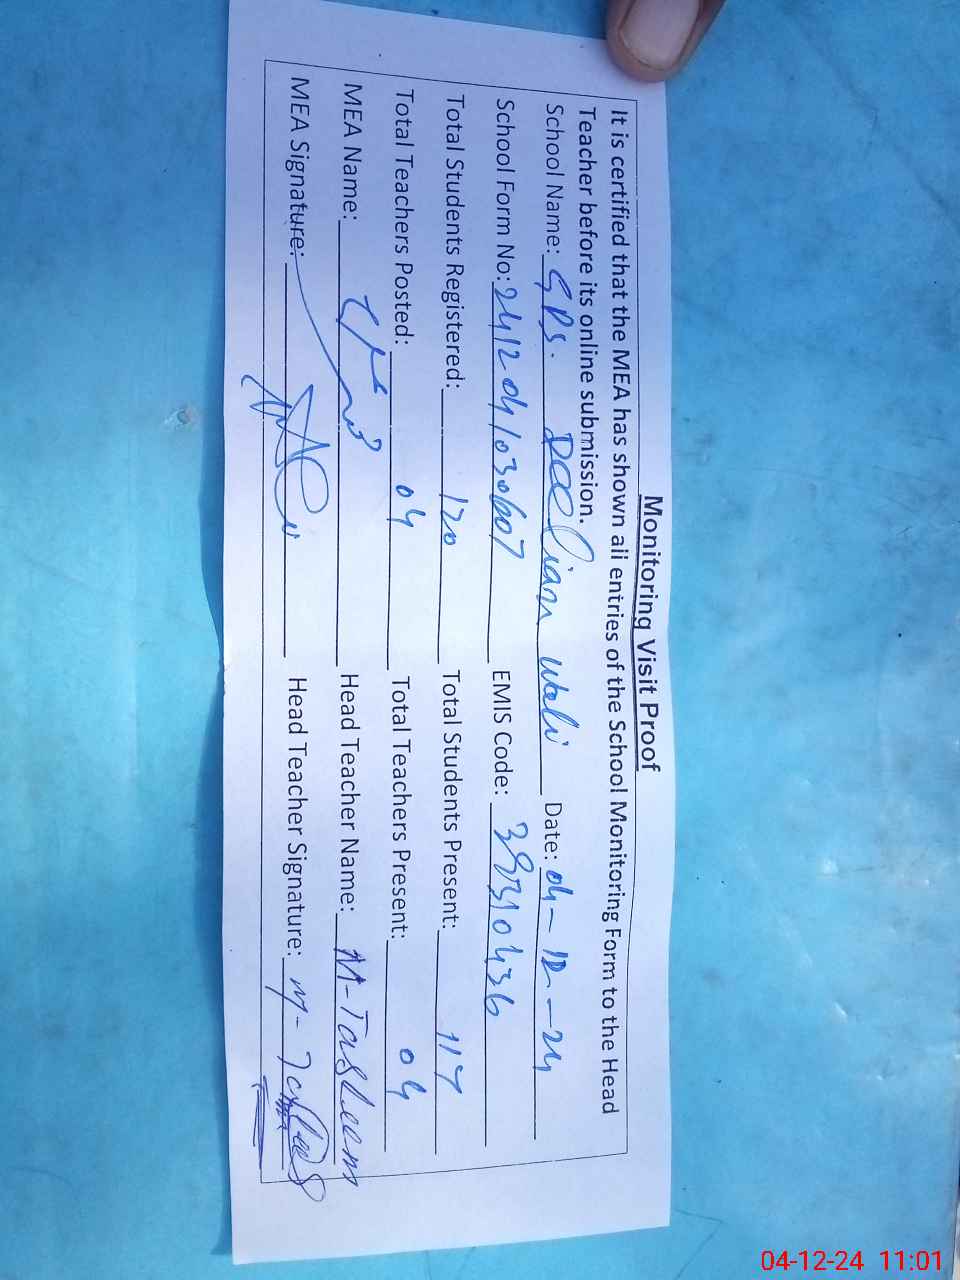 Monitoring Visit Proof
It is certified that the MEA has shown all entries of the School Monitoring Form to the Head
Teacher before its online submission.
School Name: GPS. Deelian Wali Date: 04-12-24
School Form No: 2412041030607 EMIS Code: 38310436
Total Students Registered: 120 Total Students Present: 117
Total Teachers Posted: 04 Total Teachers Present: 04
MEA Name: Head Teacher Name: M-Tasleem
MEA Signature: Head Teacher Signature: M-Tasleem
04-12-24 11:01